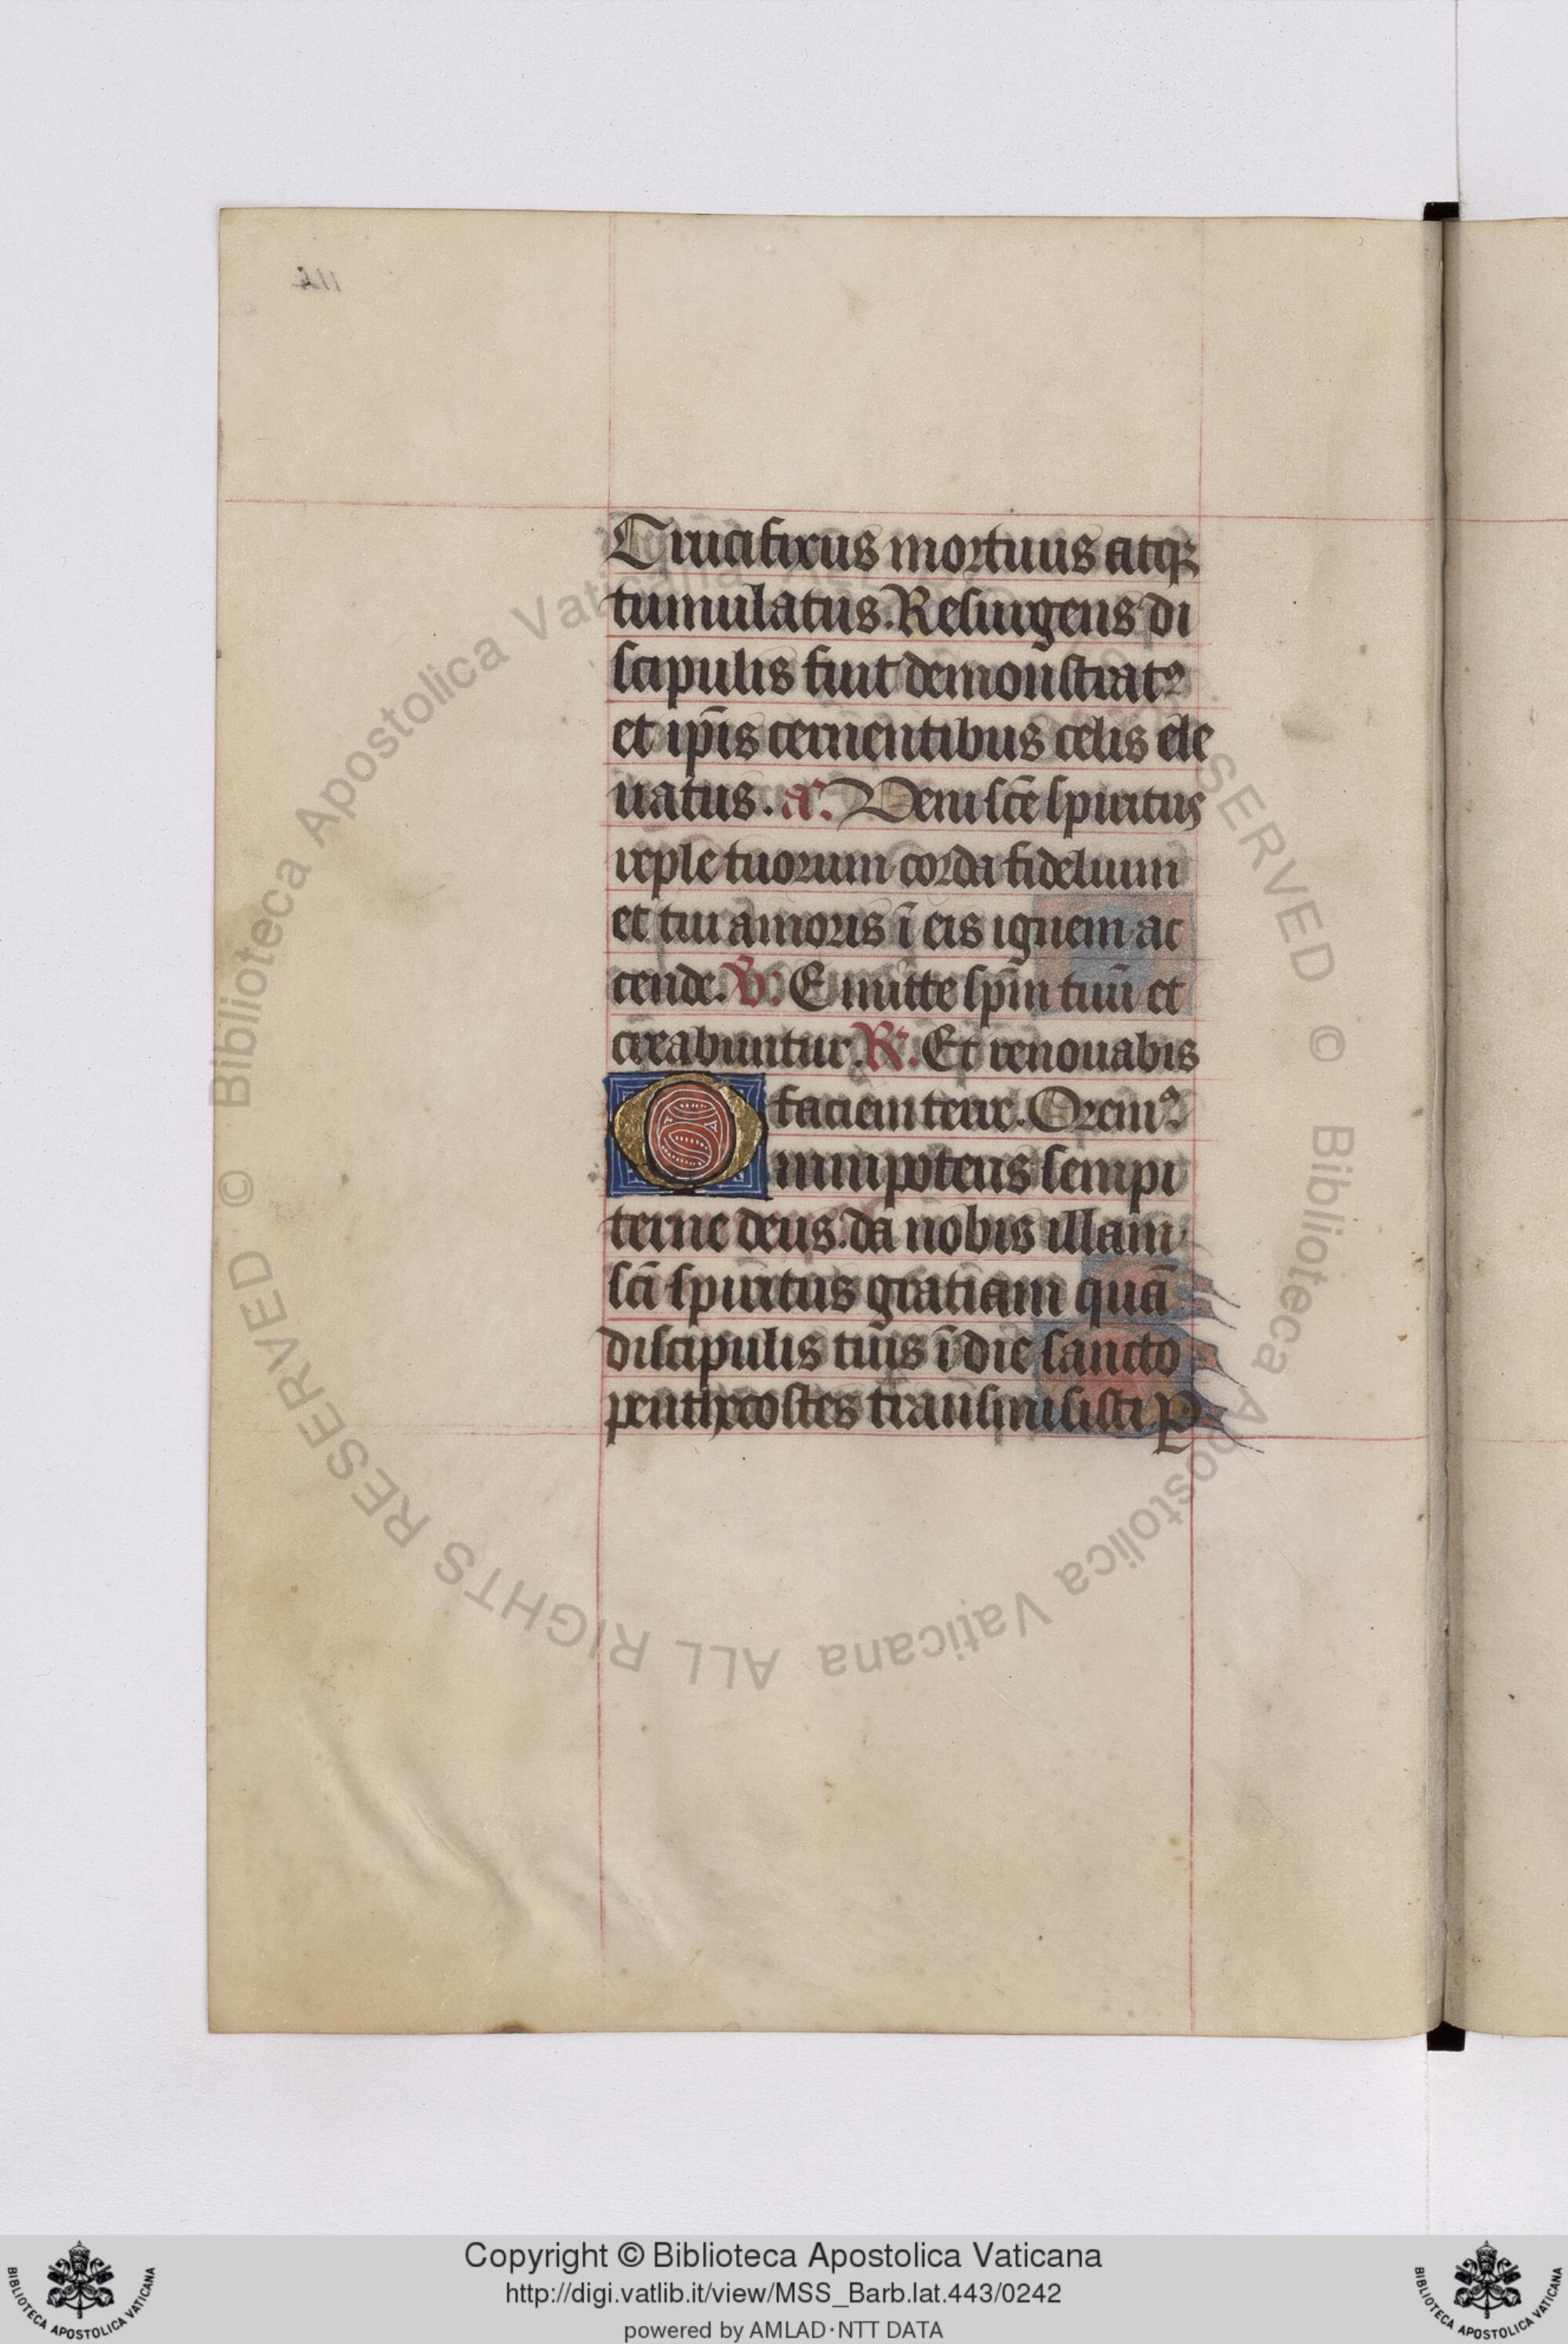 Crucifixus mortuus atqꝫ
tumulatus. Resurgens di
scipulis fuit demonstratꝰ
et ip̄is cernentibus celis ele
uatus. an̄. Veni sc̄e spiritus
reple tuorum corda fidelium
et tui amoris ī eis ignem ac
cende. ℣. Emitte spm̄ tuū et
creabuntur. ℟. Et renouabis
faciem terre. Oremꝰ
Omnipotens sempi
terne deus. da nobis illam
sc̄i spiritus gratiam quā
discipulis tuis ī die sancto
penthecostes transmisisti ꝑ
© Biblioteca Apostolica Vaticana ALL RIGHTS RESERVED
Copyright © Biblioteca Apostolica Vaticana
http://digi.vatlib.it/view/MSS_Barb.lat.443/0242
powered by AMLAD·NTT DATA
BIBLIOTECA APOSTOLICA VATICANA
BIBLIOTECA APOSTOLICA VATICANA